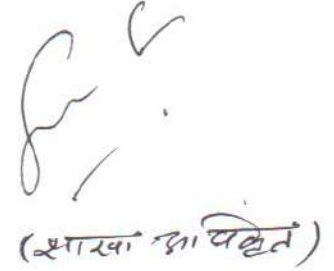 (शाखा अधिकृत)